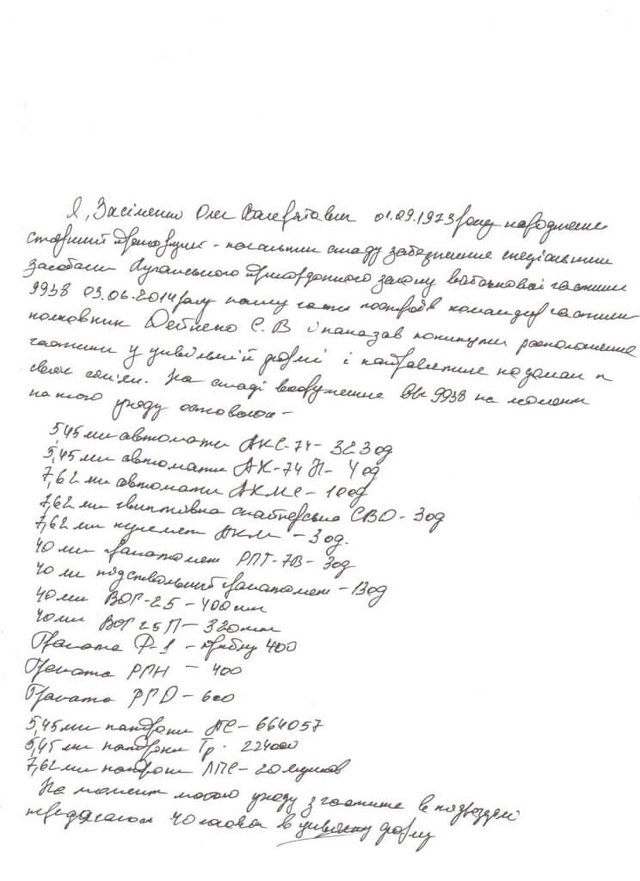 Я, Засіменко Олег Валерійович 01.09.1973 року народження
старший прапорщик - начальник складу забезпечення спеціальними
засобами Луганського прикордонного загону військової частини
9938 03.06.2014 року нашу части построїв командир частини
полковник Дейнеко С. В і наказав покинути расположение
частини у цивільній формі і направлятись по домам к
своїм сем'ям. На складі вооружение в/ч 9938 на момент
на мого уходу оставалося -
5,45 мм автомати АКС-74 - 323 од
5,45 мм автомати АК-74 П - 4 од
7,62 мм автомати АКМС - 10 од
7,62 мм гвинтівка снайперська СВД - 3 од
7,62 мм кулемет ПКМ - 3 од.
40 мм гранатомет РПГ-7В - 3 од
40 мм подствольний гранатомет - 13 од
40 мм ВОГ-25 - 400 шт
40 мм ВОГ 25 П - 320 шт
Граната Ф-1 - 400
Граната РГН - 400
Граната РГД - 600
5,45 мм патрони ПС - 664057
5,45 мм патрони Тр. 224000
7,62 мм патрони ЛПС - 20
На момент моього уходу з частини в
40 в цивільну форму